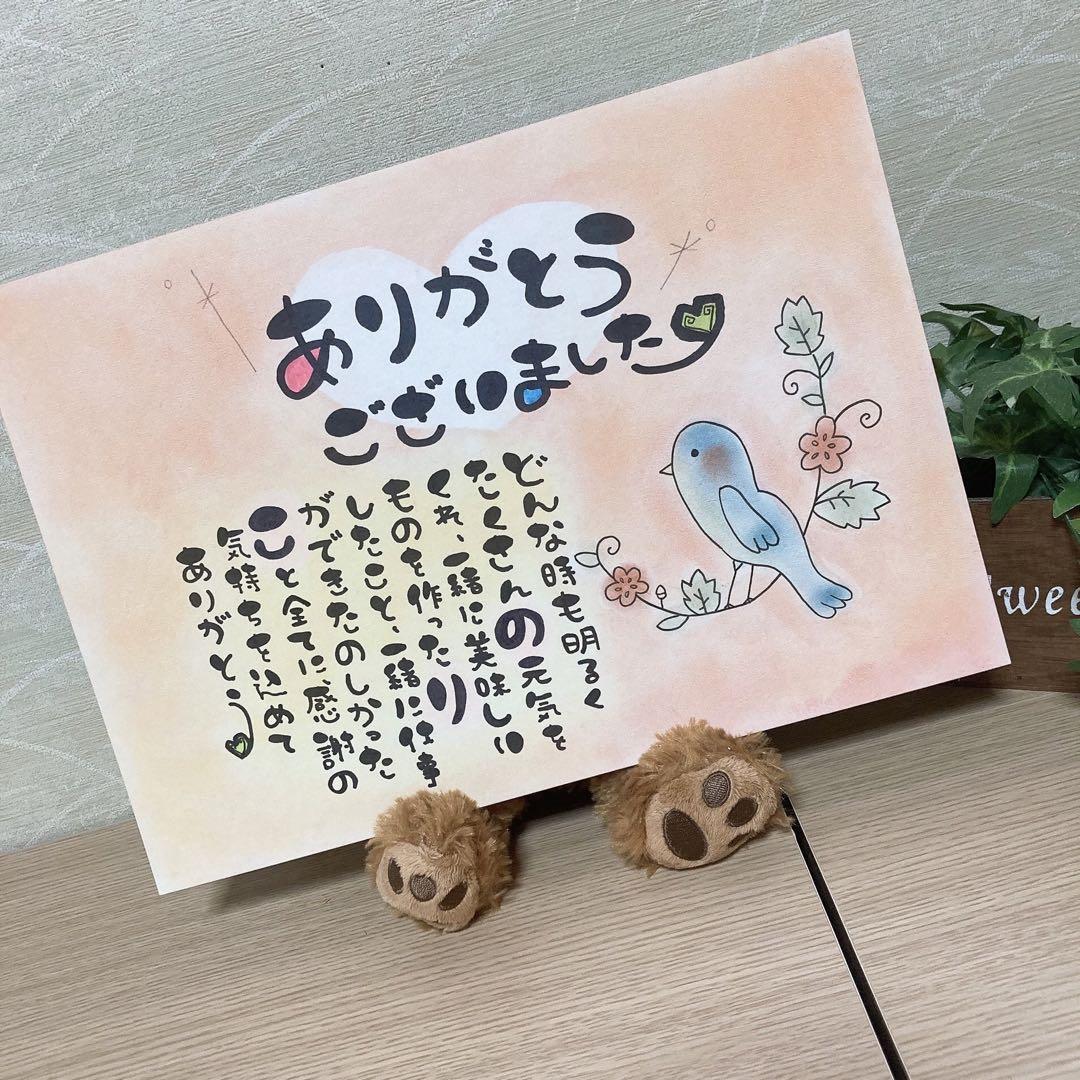 ありがとう
ございました
どんな時も明るく
たくさんの元気を
くれ、一緒に美味しい
ものを作ったり
したこと、一緒に仕事
ができたのしかった
こと全てに、感謝の
気持ちを込めて
ありがとう
wee